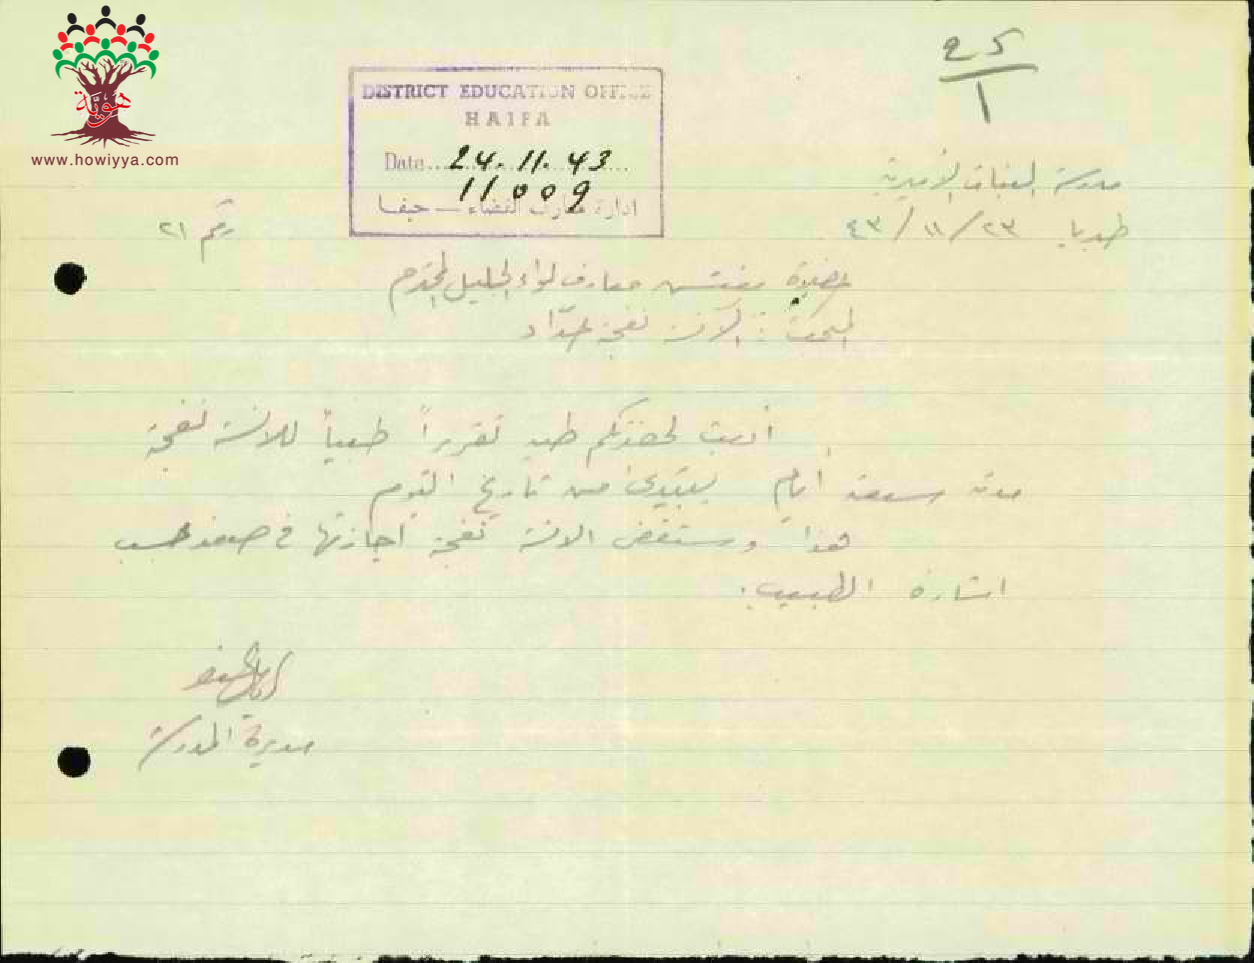 هوية
www.howiyya.com
DISTRICT EDUCATION OFFICE
HAIFA
Date 24.11.43
11009
ادارة معارف القضاء — حيفا
25
1
مدرسة البنات الاميرية
طبريا ٢٣/١١/٤٣
رقم ٢١
حضرة مفتش معارف لواء الجليل المحترم
المبحث: الآنسة نفجة حدّاد
لحضرتكم طيه تقريراً طبياً للانسة نفجة
مدة سبعة أيام يبتدئ من تاريخ اليوم
هذا وستقضي الانسة نفجة اجازتها في صفد حسب
اشارة الطبيب.
مديرة المدرسة